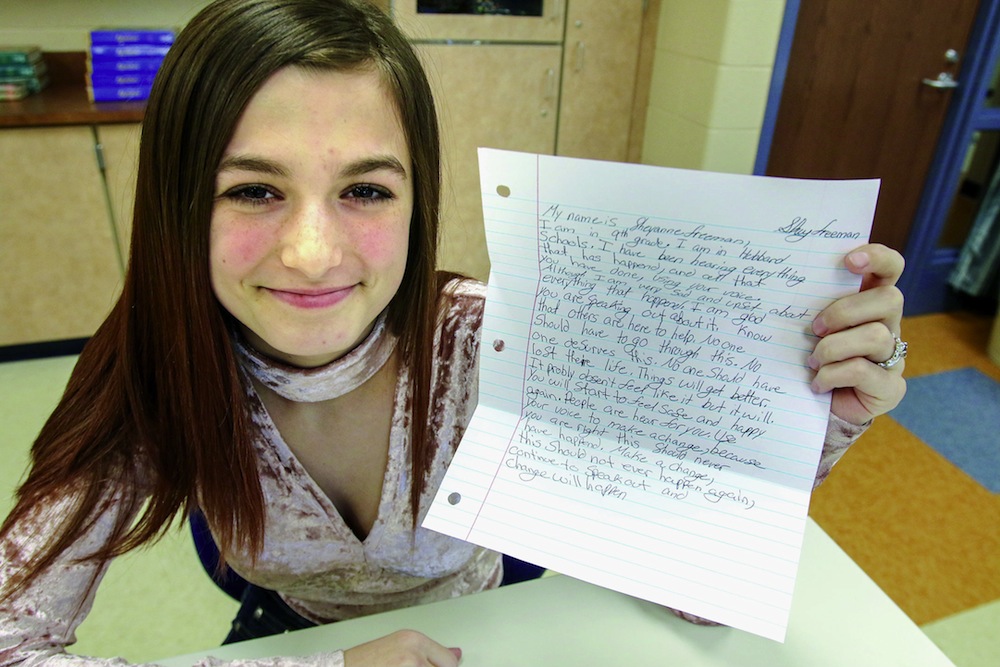 Shay freeman
My name is Sheyanne freeman,
I am in 9th grade. I am in Hebbard
Schools. I have been hearing everything
that has happend, and all that
you have done, using your voice,
Although I am very sad and upset about
everything that happend, I am glad
you are speaking out about it. Know
that others are here to help. No one
Should have to go through this. No
one deserves this. No one Should have
lost there life. Things will get better.
It probly dosen't feel like it but it will.
You will start to feel Safe and happy
again. People are hear for you. Use
your voice to make a change, because
you are right this Should never
have happend. Make a change,
this Should not ever happen again,
continue to Speak out and
change will happen